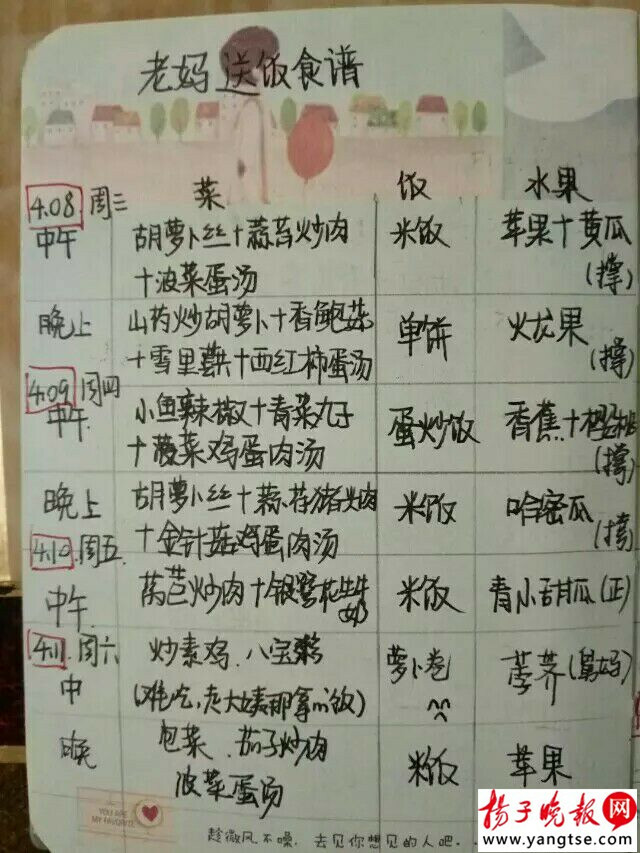 老妈送饭食谱
菜 饭 水果
4.08 周三
中午 胡萝卜丝+蒜苔炒肉 米饭 苹果+黄瓜
+菠菜蛋汤 (撑)
晚上 山药炒胡萝卜+香鲍菇 单饼 火龙果
+雪里蕻+西红柿蛋汤 (撑)
4.09 周四
中午 小鱼辣椒+青菜丸子 蛋炒饭 香蕉+樱桃
+菠菜鸡蛋肉汤 (撑)
晚上 胡萝卜丝+蒜苔猪头肉 米饭 哈密瓜
+金针菇鸡蛋肉汤 (撑)
4.10 周五
中午 莴苣炒肉+银鹭花生牛奶 米饭 青小甜瓜(正)
4.11 周六 炒素鸡、八宝粥 萝卜卷 荸荠(舅妈)
中 (难吃,老大姨那拿的饭)
晚 包菜、茄子炒肉 米饭 苹果
菠菜蛋汤
YOU ARE
MY FAVORITE
趁微风不噪,去见你想见的人吧..
扬子晚报网
www.yangtse.com